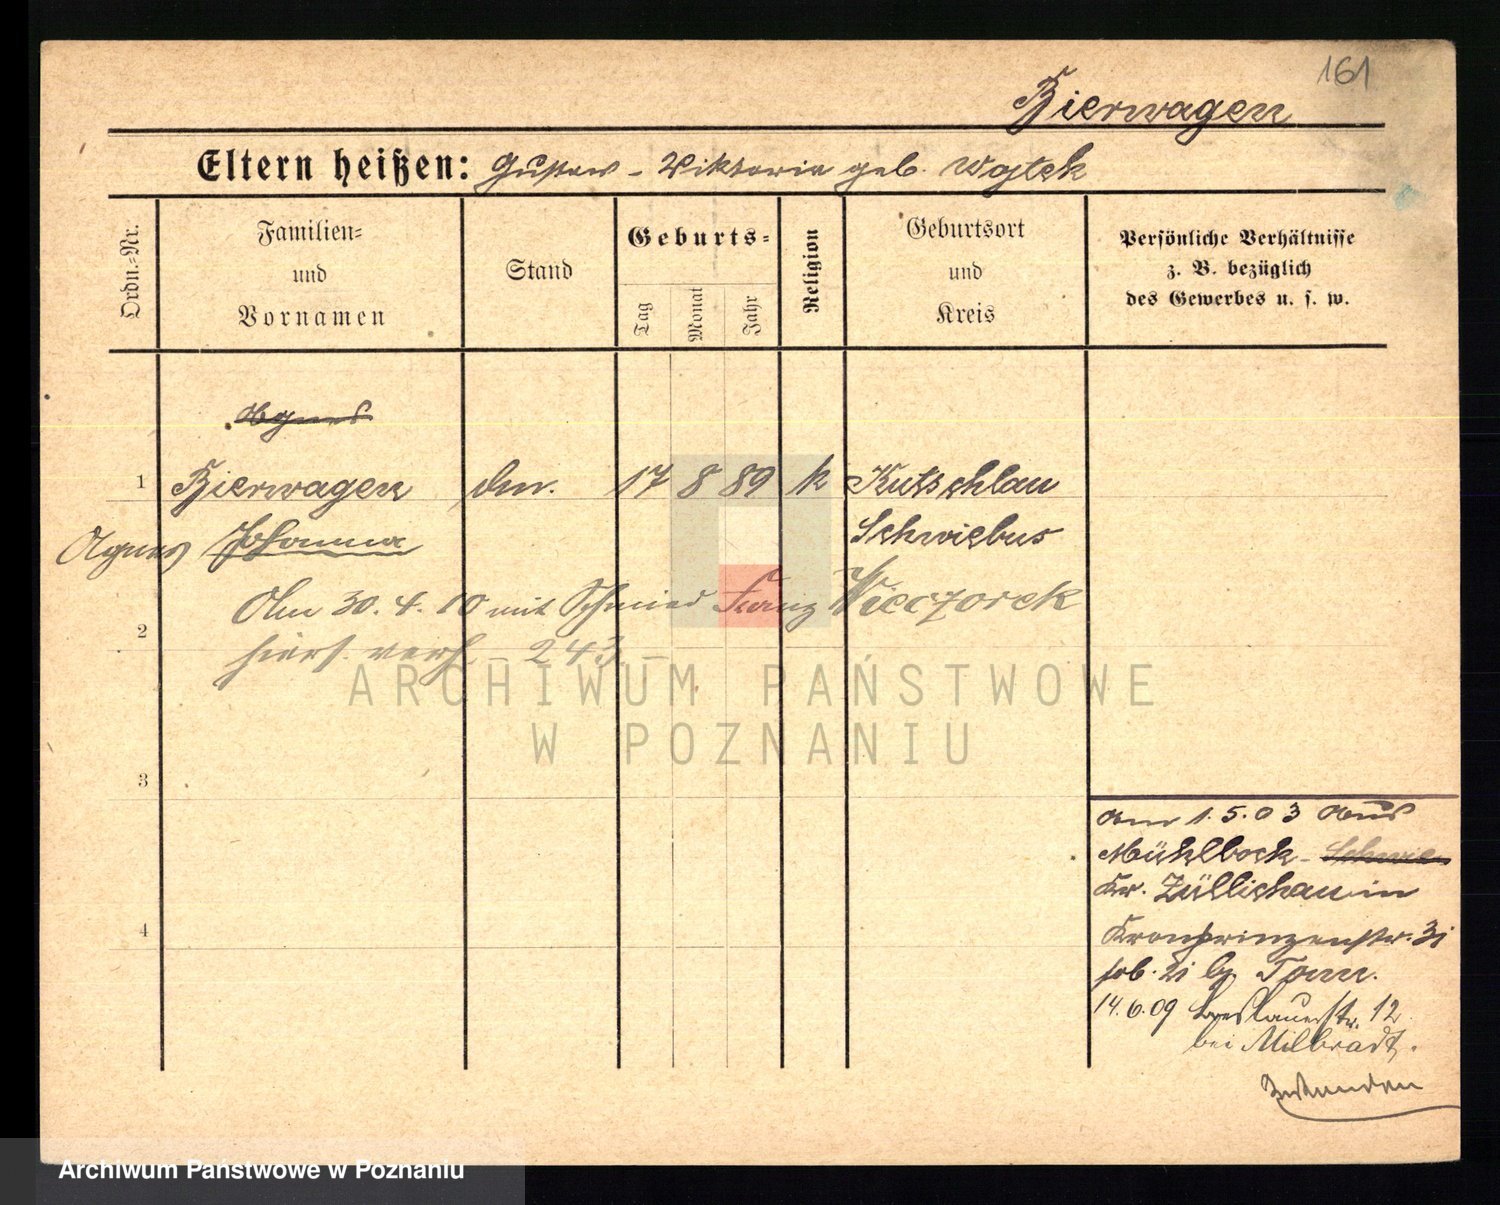 161
Bierwagen
Eltern heißen: Gustav - Viktoria geb. Wojtek
Ordn.-Nr.
Familien-
und
Vornamen
Stand
Geburts-
Tag
Monat
Jahr
Religion
Geburtsort
und
Kreis
Persönliche Verhältnisse
z. B. bezüglich
des Gewerbes u. s. w.
Agnes
1 Bierwagen 17 8 89 k Kutschlau
Agnes Johanna Schwiebus
Am 30. 4. 10 mit Schmied Franz Wieczorek
2
hiers. verh. - 243. -
ARCHIWUM PAŃSTWOWE
W POZNANIU
3
Am 1. 5. 03 aus
Mühlbock - Schwie
Kr. Züllichau in
4
Kronprinzenstr. 31
bg. Tonn.
14.6.09 Breslauerstr. 12
bei Milbradt.
Archiwum Państwowe w Poznaniu